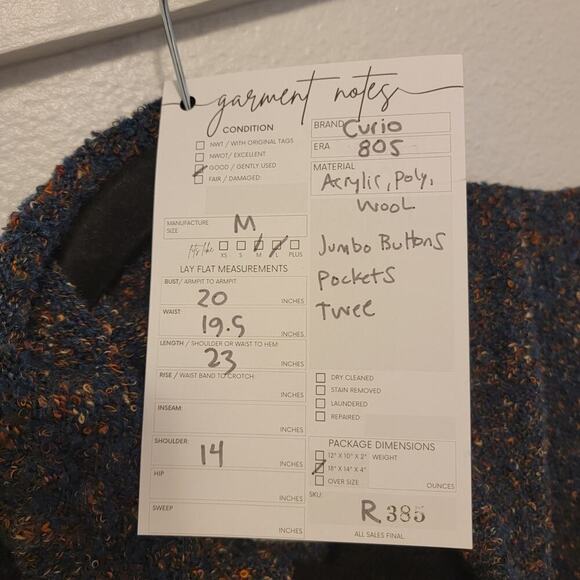 garment notes
CONDITION
NWT / WITH ORIGINAL TAGS
NWOT / EXCELLENT
GOOD / GENTLY USED
FAIR / DAMAGED:
MANUFACTURE SIZE M
fits like XS S M L PLUS
LAY FLAT MEASUREMENTS
BUST / ARMPIT TO ARMPIT
20 INCHES
WAIST
19.5 INCHES
LENGTH / SHOULDER OR WAIST TO HEM
23 INCHES
RISE / WAIST BAND TO CROTCH:
INCHES
INSEAM:
INCHES
SHOULDER:
14 INCHES
HIP
INCHES
SWEEP
INCHES
BRAND Curio
ERA 80S
MATERIAL
Acrylic, Poly,
Wool
Jumbo Buttons
Pockets
Twee
DRY CLEANED
STAIN REMOVED
LAUNDERED
REPAIRED
PACKAGE DIMENSIONS
12" X 10" X 2" WEIGHT
18" X 14" X 4"
OVER SIZE OUNCES
SKU:
R 385
ALL SALES FINAL